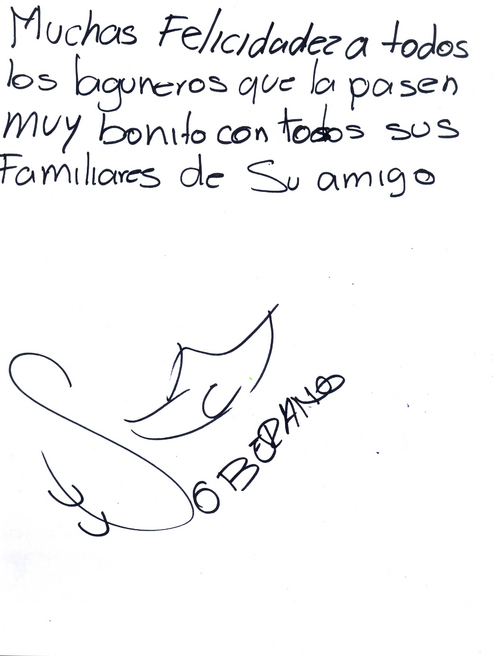 Muchas Felicidadez a todos
los laguneros que la pasen
muy bonito con todos sus
Familiares de Su amigo
SOBERANO